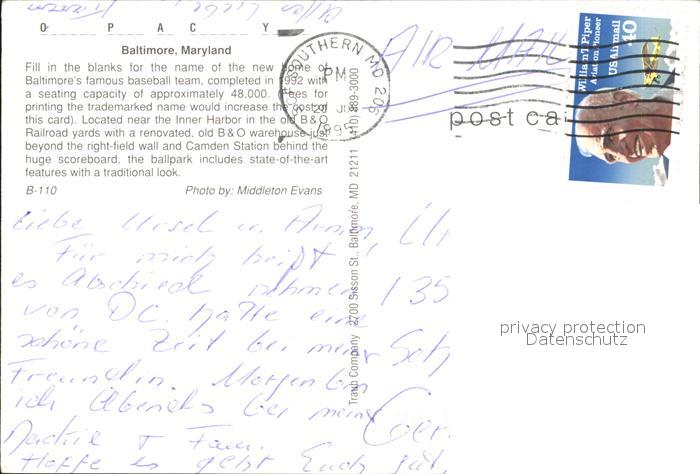 O P A C Y
Baltimore, Maryland
Fill in the blanks for the name of the new home of
Baltimore's famous baseball team, completed in 1992 with
a seating capacity of approximately 48,000. (Fees for
printing the trademarked name would increase the cost of
this card). Located near the Inner Harbor in the old B&O
Railroad yards with a renovated, old B&O warehouse just
beyond the right-field wall and Camden Station behind the
huge scoreboard, the ballpark includes state-of-the-art
features with a traditional look.
B-110 Photo by: Middleton Evans
SOUTHERN MD 206
PM
1995
AIR MAIL
William T. Piper
Aviation Pioneer
US Airmail
40
post ca
Traub Company 2700 Sisson St., Baltimore, MD 21211 (410) 889-3000
Liebe Ursel u. Armin,
Für mich heißt
es Abschied nehmen
von DC. hatte eine
schöne Zeit bei meiner
Freundin. Morgen bin
ich Abends bei meiner
+ Fam.
Hoffe es geht Euch gut.
135
Ger
privacy protection
Datenschutz